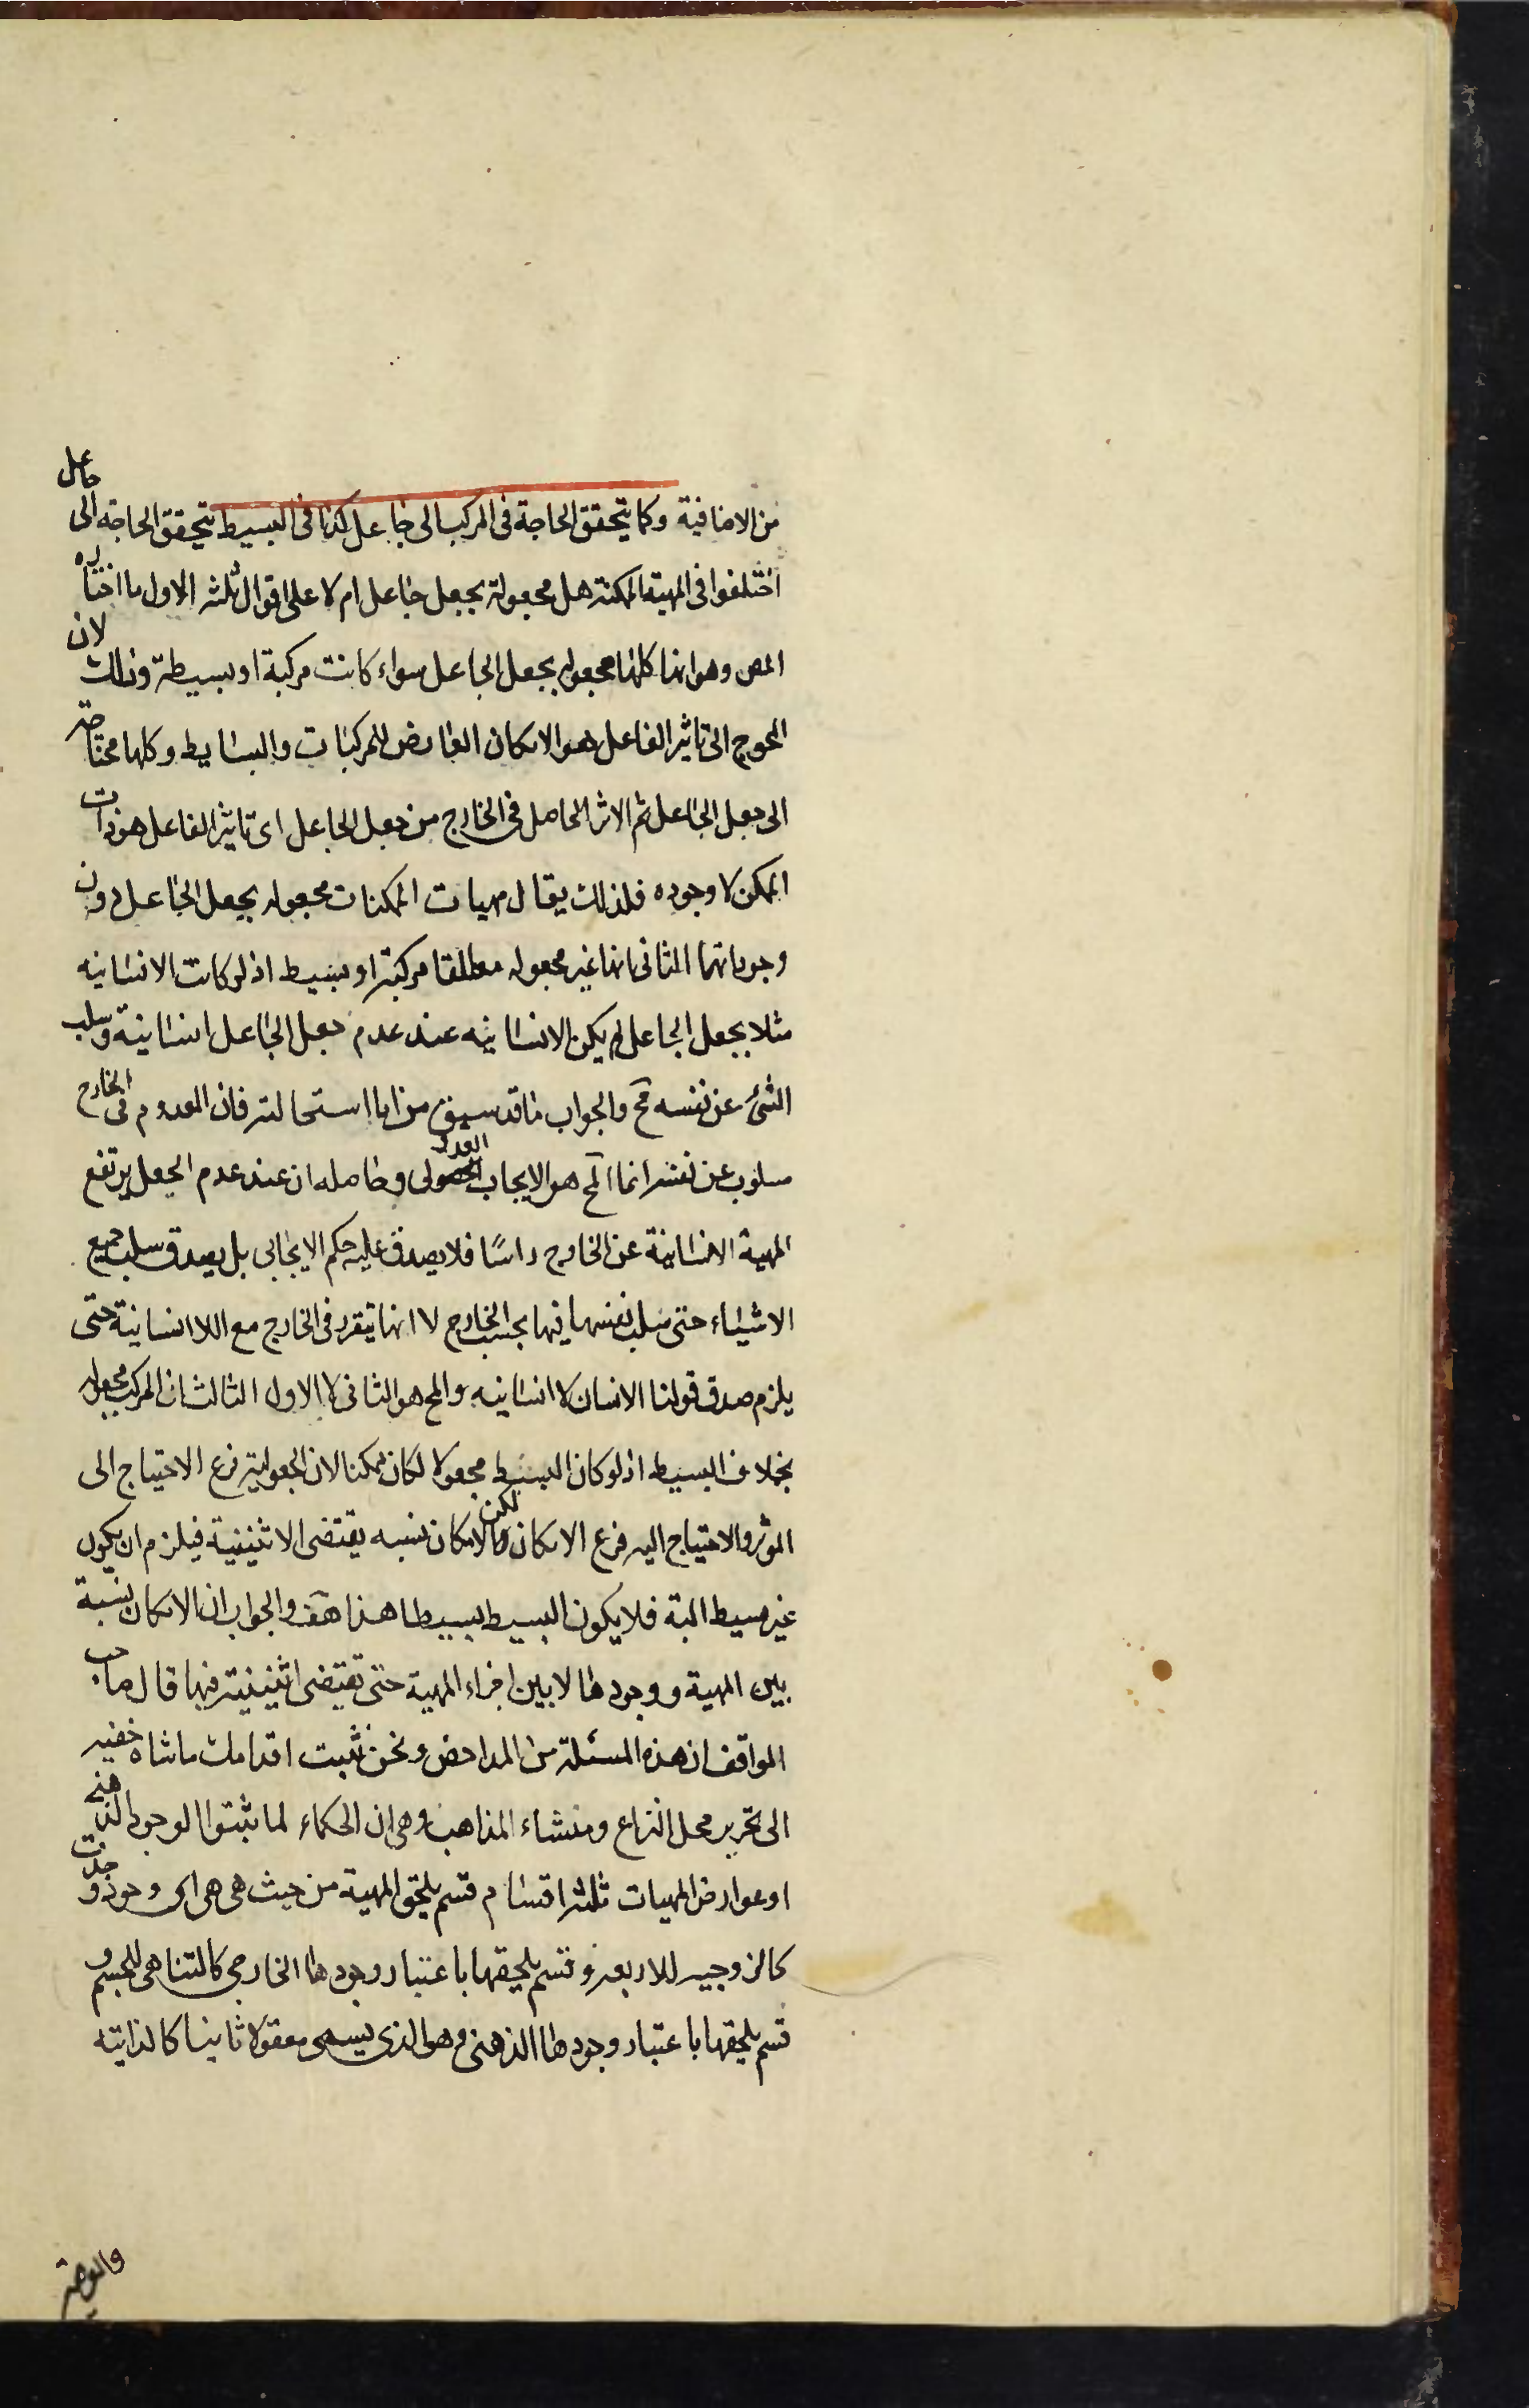 من الاضافية وكما يتحقق الحاجة فى المركب الى جاعل كذا فى البسيط يتحقق الحاجة الى جاعل
اختلفوا فى المهية الممكنة هل مجعولة بجعل جاعل ام لا على اقوال ثلثة الاول ما اختاره
المص وهو انها كلها مجعوله بجعل الجاعل سواء كانت مركبة او بسيطة وذلك لان
المحوج الى تاثير الفاعل هو الامكان العارض للمركبات والبسايط وكلها محتاجة
الى جعل الجاعل ثم الاثر الحاصل فى الخارج من جعل الجاعل اى تاثير الفاعل هو ذات
الممكن لا وجوده فلذلك يقال مهيات الممكنات مجعوله بجعل الجاعل دون
وجوداتها الثانى انها غير مجعوله مطلقا مركبة او بسيط اذ لو كانت الانسانيه
مثلا بجعل الجاعل لم يكن الانسانيه عند عدم جعل الجاعل انسانية وسلب
الشئ عن نفسه مح والجواب ما قد سبق من انا استحالته فان المعدوم فى الخارج
مسلوب عن نفسه انما المح هو الايجاب العدولى وحاصله ان عند عدم الجعل يرتفع
المهية الانسانية عن الخارج راسًا فلا يصدق عليه حكم الايجابى بل يصدق سلب جميع
الاشياء حتى سلب نفسها فيها بحسب الخارج لا انها يتقرر فى الخارج مع اللا انسانية حتى
يلزم صدق قولنا الانسان لا انسانيه والمح هو الثانى لا الاول الثالث ان المركب مجعوله
بخلاف البسيط اذ لو كان البسيط مجعولا لكان ممكنا لان المجعولية فرع الاحتياج الى
الموثر والاحتياج اليه فرع الامكان لكن الامكان نسبه يقتضى الاثنينية فيلزم ان يكون
غير بسيط البتة فلا يكون البسيط بسيطا هذا هف والجواب ان الامكان نسبة
بين المهية ووجودها لا بين اجزاء المهية حتى تقتضى اثنينية فيها قال صاحب
المواقف ان هذه المسئلة من المداحض ونحن نثبت اقدامك باشارة خفيه
الى تحرير محل النزاع ومنشاء المذاهب وهى ان الحكماء لما ثبتوا الوجود الذهنى
او عوارض المهيات ثلثة اقسام قسم يلحق المهية من حيث هى هى اى وجود وجدت
كالزوجيه للاربعة وقسم يلحقها باعتبار وجودها الخارجى كالتناهى للجسم و
قسم يلحقها باعتبار وجودها الذهنى وهو الذى يسمى معقولا ثانيا كالذاتية
والعرضية